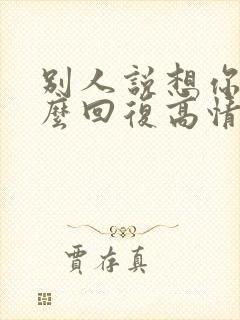 別人説想你
麼回復高情
賈存真